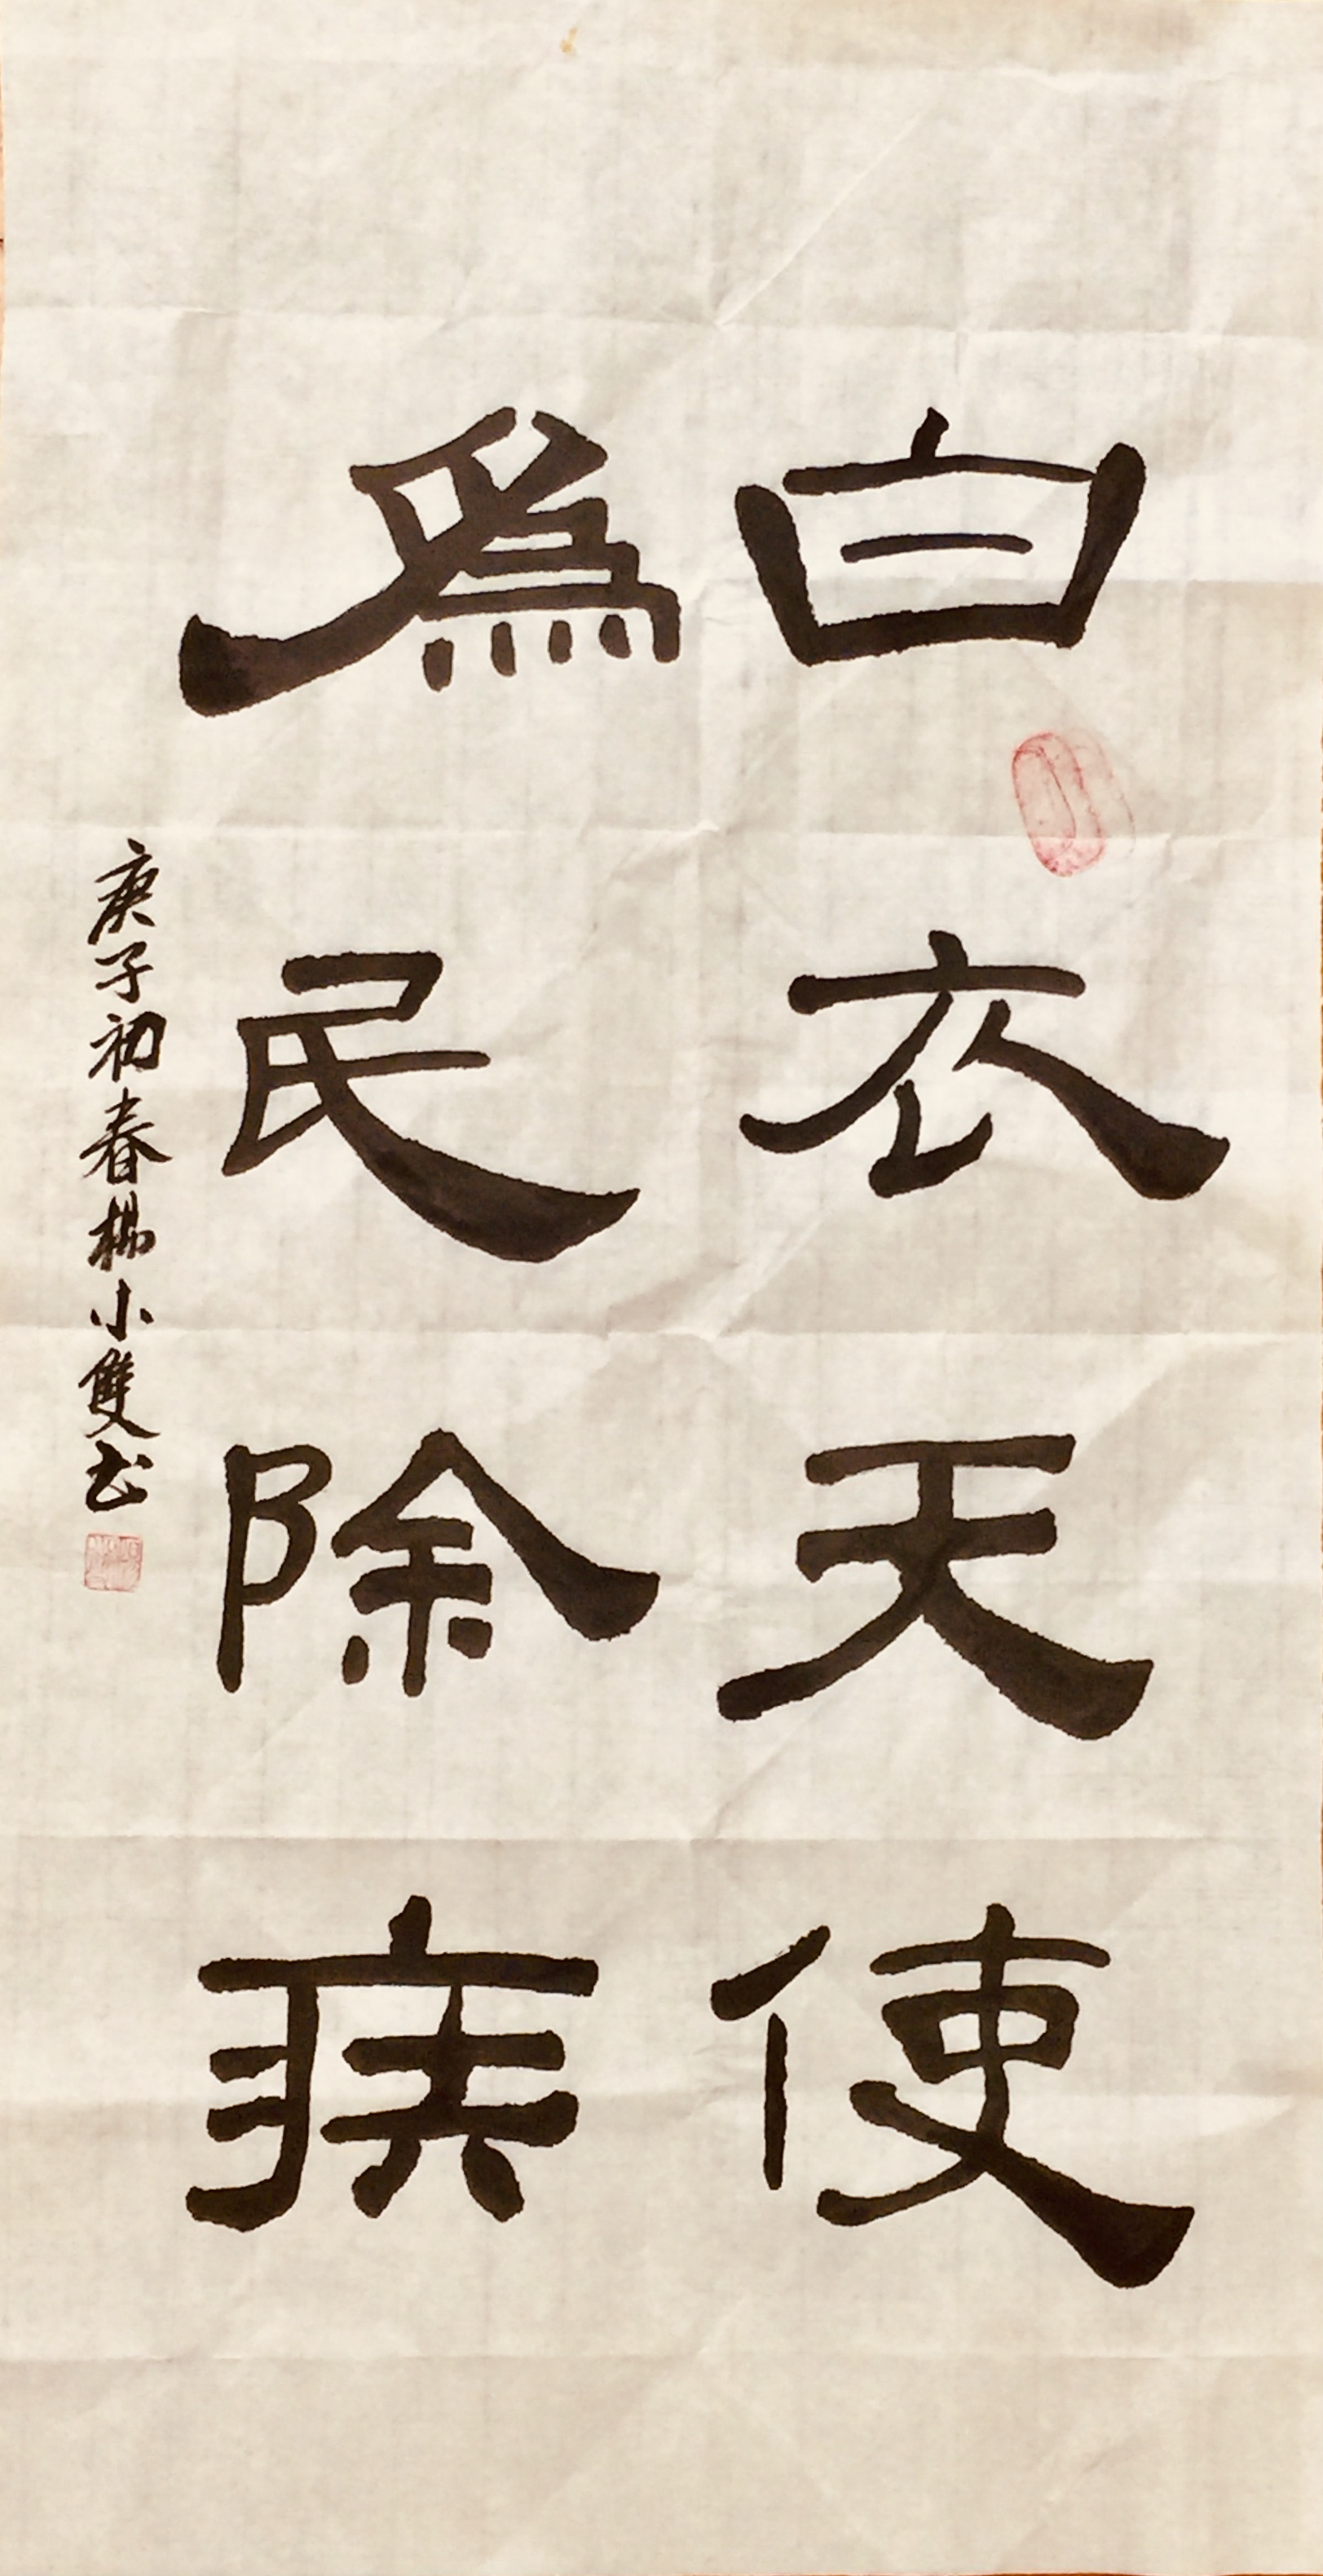 白衣天使
爲民除疾
庚子初春楊小雙书